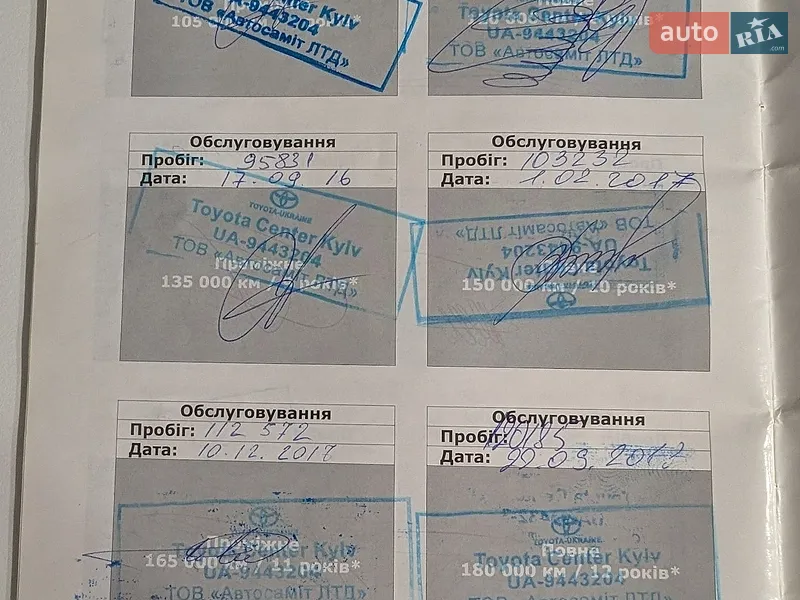 Toyota Center Kyiv
UA-9443204
ТОВ «Автосаміт ЛТД»
105 000 км
Toyota Center Kyiv
UA-9443204
ТОВ «Автосаміт ЛТД»
auto RIA .com
Обслуговування
Пробіг: 95831
Дата: 17.09.16
TOYOTA-UKRAINE
Toyota Center Kyiv
UA-9443204
ТОВ «Автосаміт ЛТД»
Проміжне
135 000 км / років*
Обслуговування
Пробіг: 103232
Дата: 1.02.2017
ТОВ «Автосаміт ЛТД»
UA-9443204
Toyota Center Kyiv
150 000 км / 10 років*
Обслуговування
Пробіг: 112 572
Дата: 10.12.2017
Toyota Center Kyiv
UA-9443204
ТОВ «Автосаміт ЛТД»
Проміжне
165 000 км / 11 років*
Обслуговування
Пробіг: 120185
Дата: 29.09.
TOYOTA-UKRAINE
Toyota Center Kyiv
UA-9443204
ТОВ «Автосаміт ЛТД»
Повна
180 000 км / 12 років*